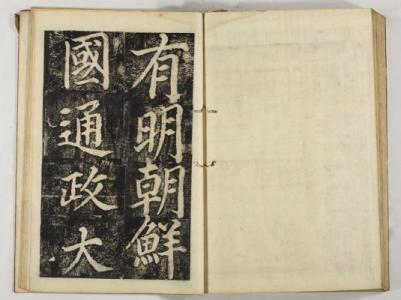 有明朝鮮
國通政大